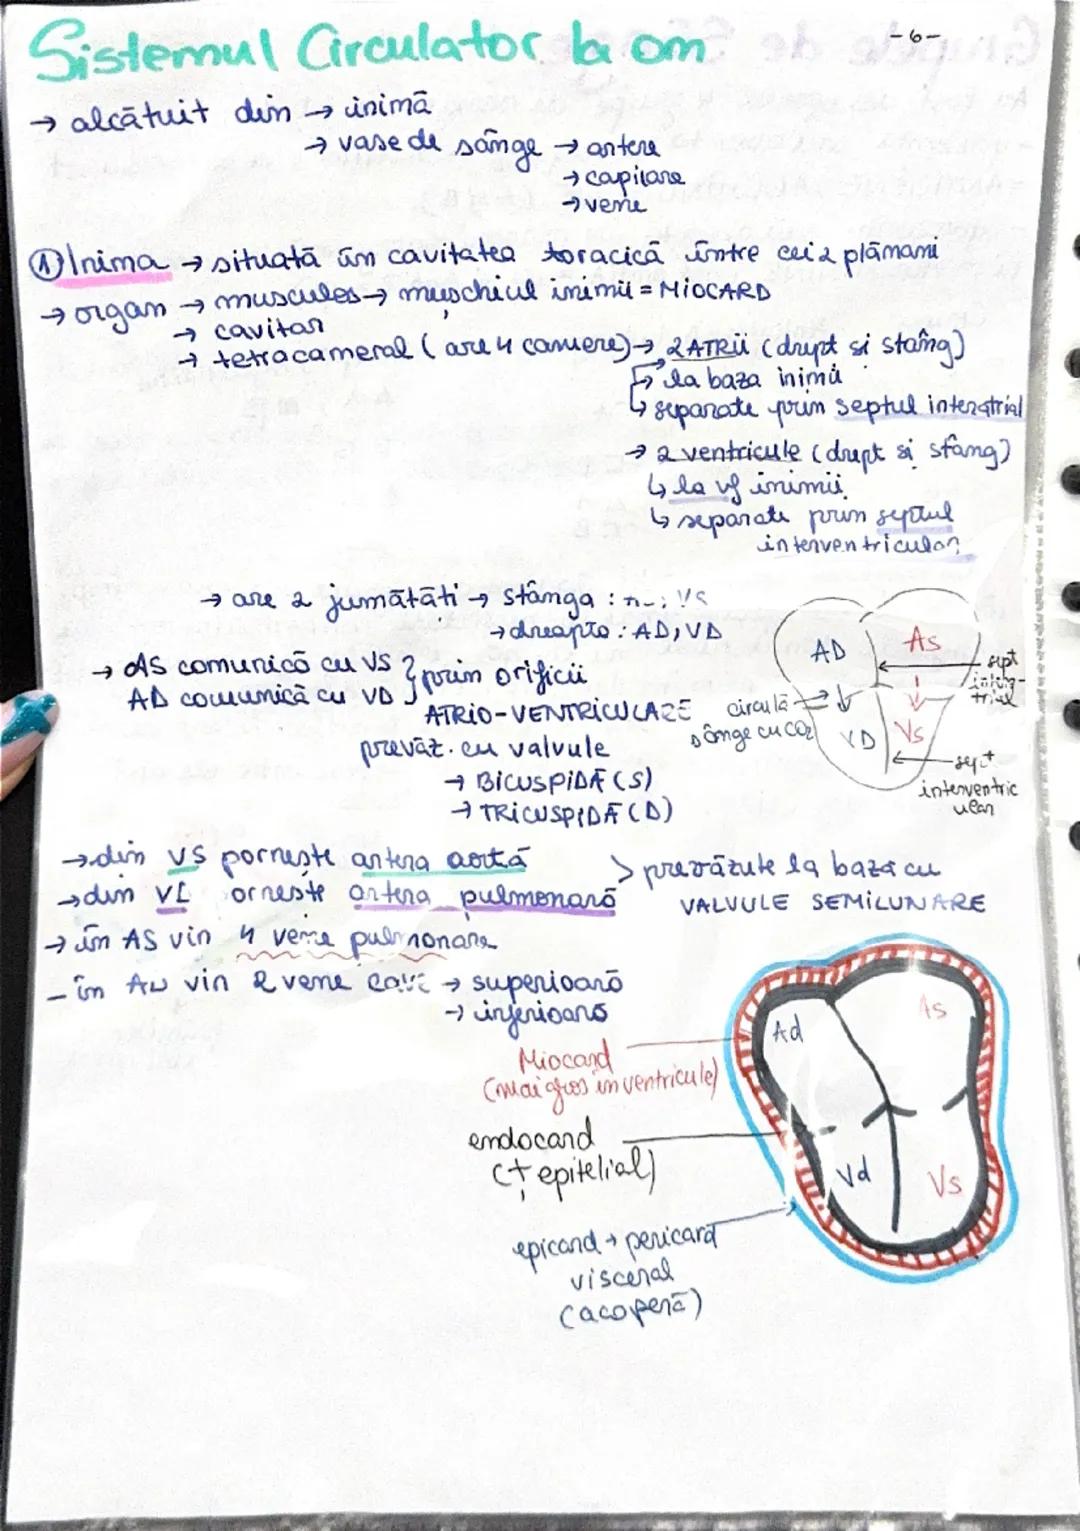 Sistemul Circulator la om
-6-
→ alcătuit din → inimă
→ vase de sânge → artere
→ capilare
→ vene
① Inima → situată în cavitatea toracică între cei 2 plămâni
→ organ → musculos → mușchiul inimii = MIOCARD
→ cavitar
→ tetracameral (are 4 camere) → 2 ATRII (drept si stâng)
↳ la baza inimii
↳ separate prin septul interatrial
→ 2 ventricule (drept si stâng)
↳ la vf inimii
↳ separate prin septul
interventricular
→ are 2 jumătăti → stânga : VS
→ dreapta : AD, VD
→ AS comunică cu VS } prin orificii
AD comunică cu VD
ATRIO-VENTRICULARE
prevăz. cu valvule
→ BICUSPIDĂ (S)
→ TRICUSPIDĂ (D)
AD As
sept
interatrial
circulă
sânge cu CO2
VD Vs
sept
interventric
ular
→ din VS pornește artera aortă
→ din ornește artera pulmonară
> prevăzute la bază cu
VALVULE SEMILUNARE
→ în AS vin 4 vene pulmonare
- în vin 2 vene cave → superioară
→ inferioară
Ad As
Miocard
(mai gros in ventricule)
endocard
(ț epitelial)
Vd Vs
epicard → pericard
visceral
(acoperă)